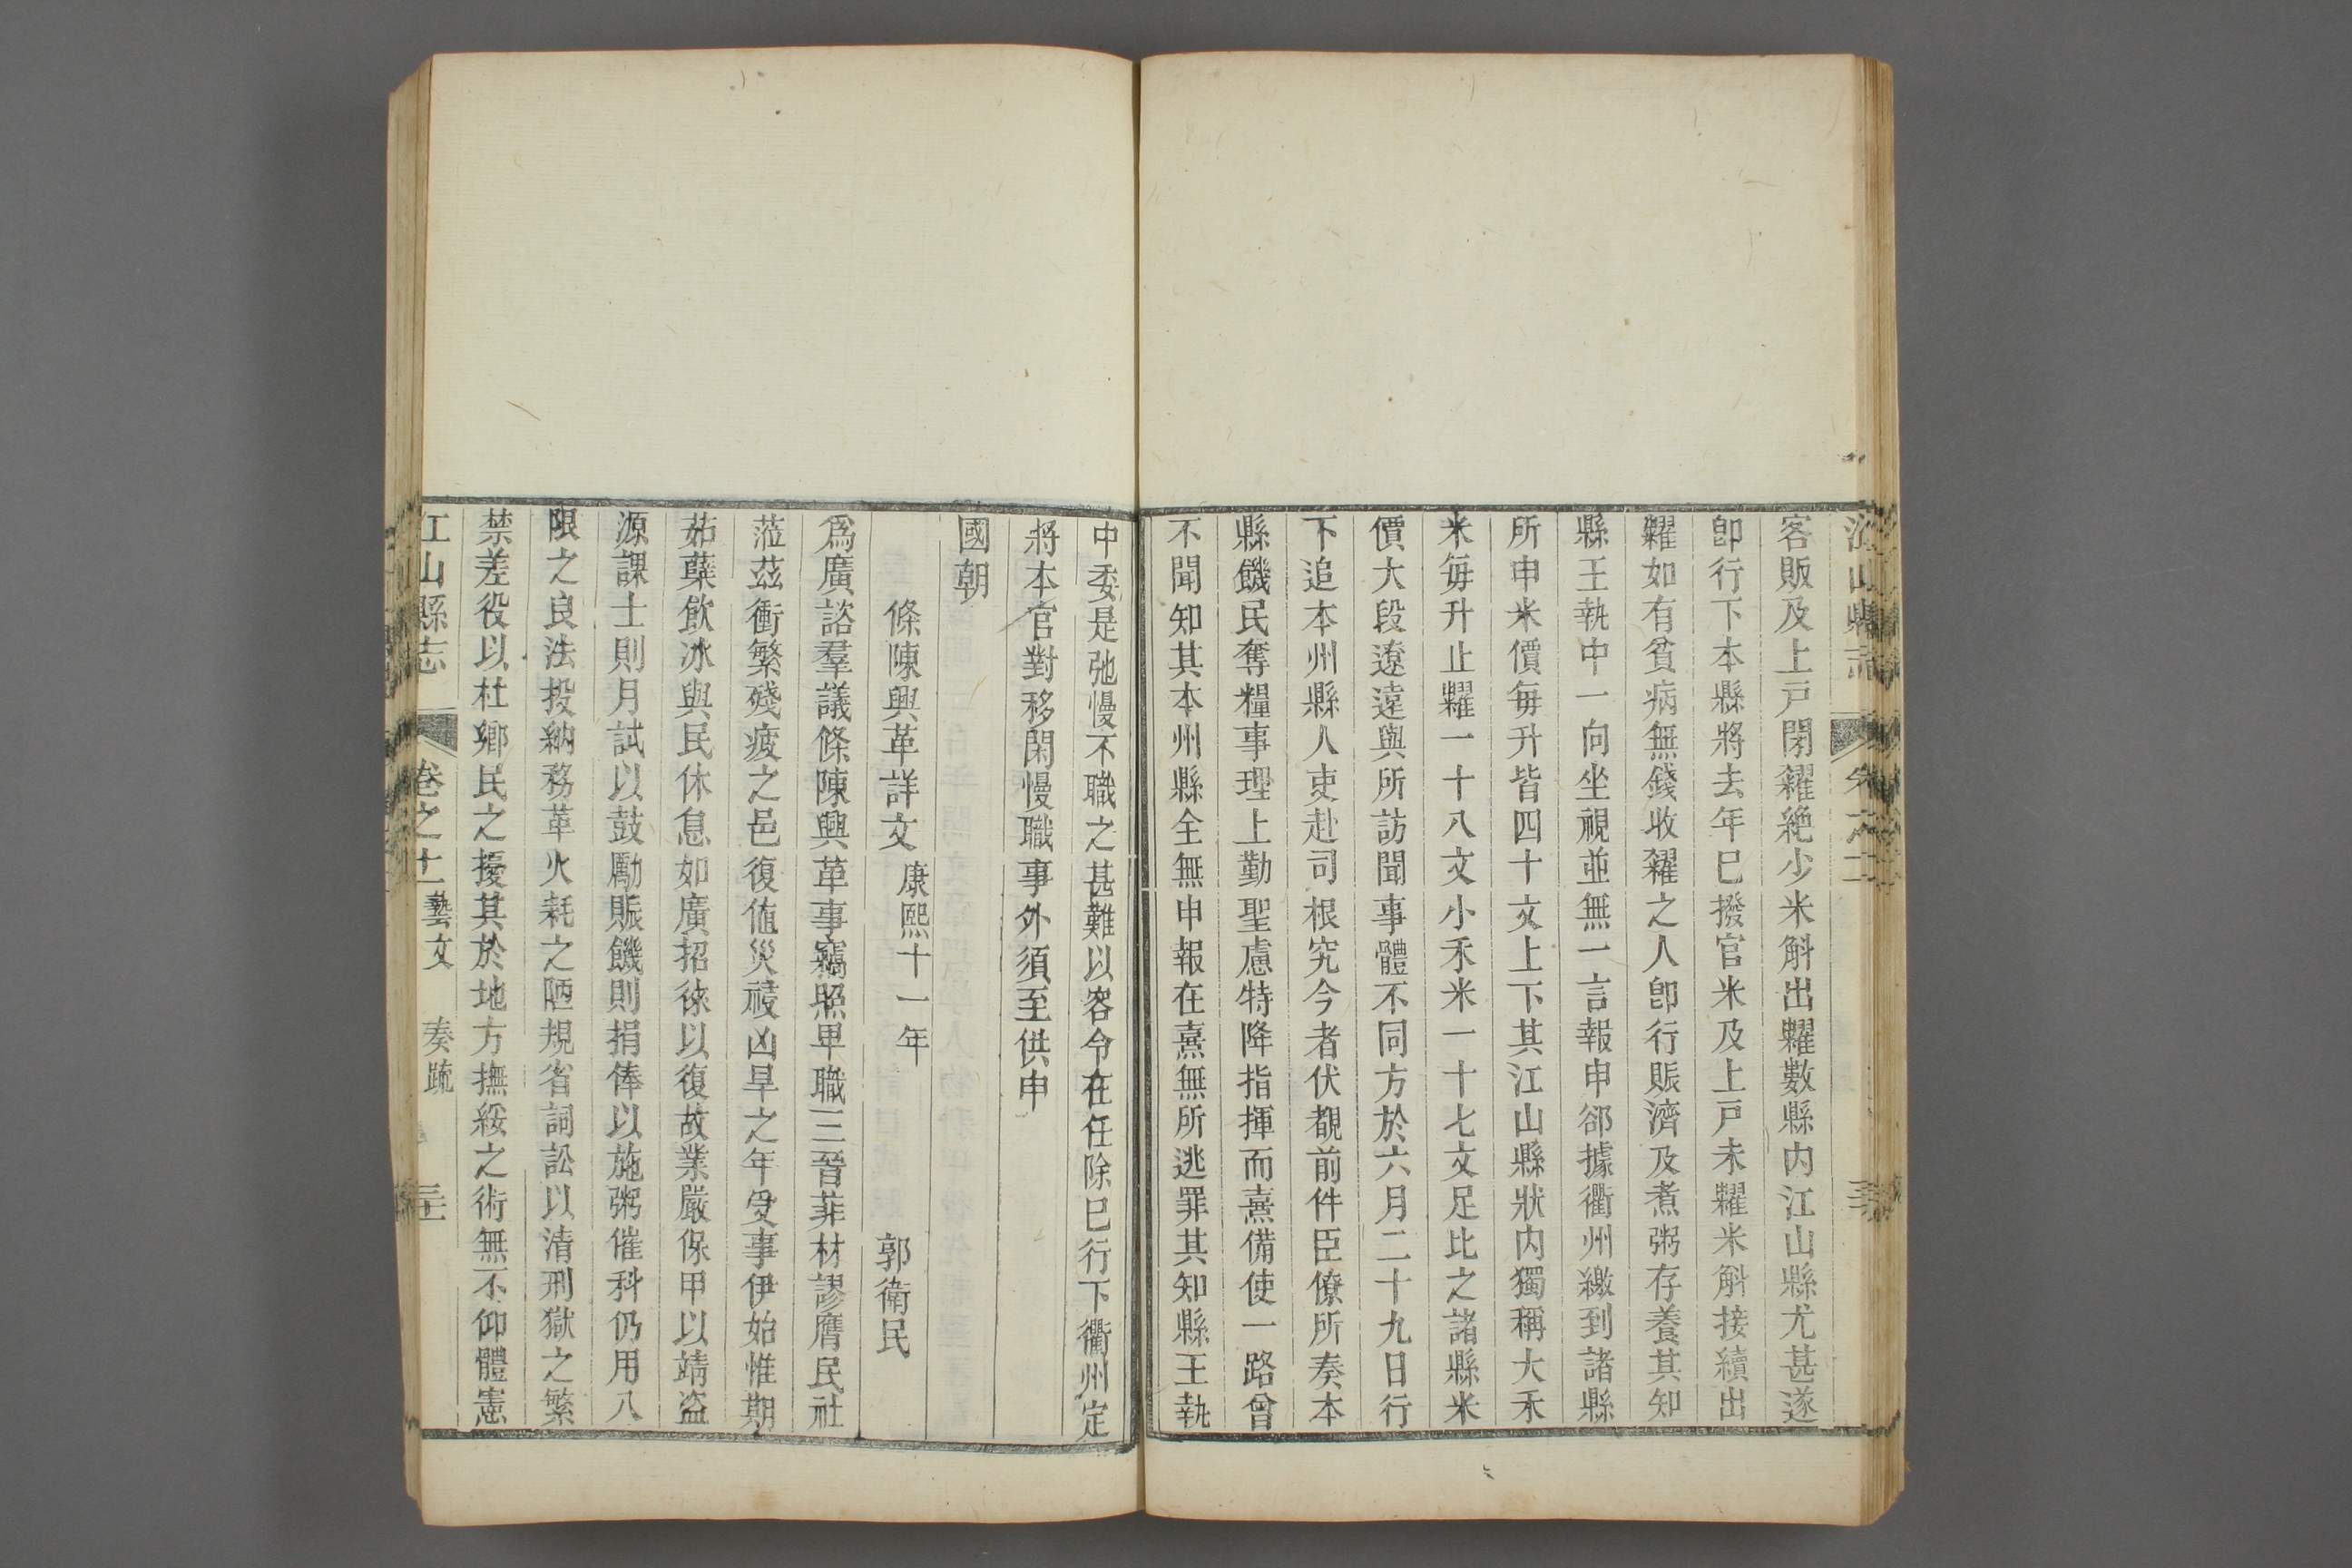 客販及上戸閉糴絶少米斛出糶數縣内江山縣尤甚遂
卽行下本縣將去年已撥官米及上戸未糶米斛接續出
糶如有貧病無錢收糴之人卽行賑濟及煮粥存養其知
縣王執中一向坐視並無一言報申郤據衢州繳到諸縣
所申米價每升皆四十文上下其江山縣狀内獨稱大禾
米每升止糶一十八文小禾米一十七文足比之諸縣米
價大段遼遠與所訪聞事體不同方於六月二十九日行
下追本州縣人吏赴司根究今者伏覩前件臣僚所奏本
縣饑民奪糧事理上勤聖慮特降指揮而熹備使一路曾
不聞知其本州縣全無申報在熹無所逃罪其知縣王執
中委是弛慢不職之甚難以容令在任除已行下衢州定
將本官對移閑慢職事外須至供申
國朝
條陳興革詳文 康熙十一年 郭衛民
爲廣諮羣議條陳興革事竊照卑職三晉菲材謬膺民社
蒞茲衝繁殘疲之邑復値災祲凶旱之年受事伊始惟期
茹蘗飲冰與民休息如廣招徠以復故業嚴保甲以靖盜
源課士則月試以鼓勵賑饑則捐俸以施粥催科仍用八
限之良法投納務革火耗之陋規省詞訟以清刑獄之繁
禁差役以杜鄉民之擾其於地方撫綏之術無不仰體憲
江山縣志 卷之十一 藝文 奏疏